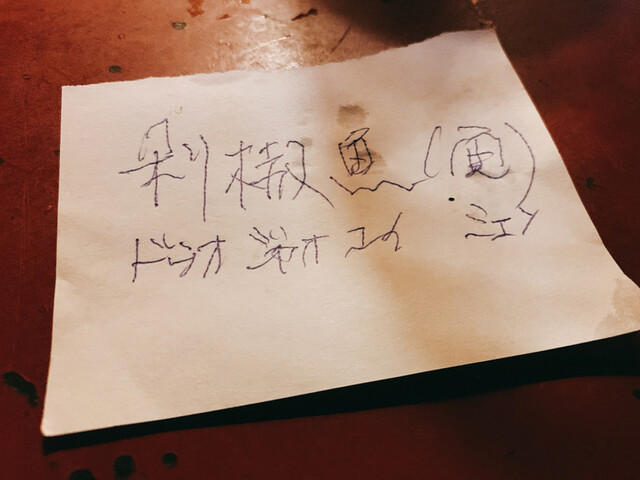 剁椒魚(面)
ドゥオ ジャオ ユイ ミェン